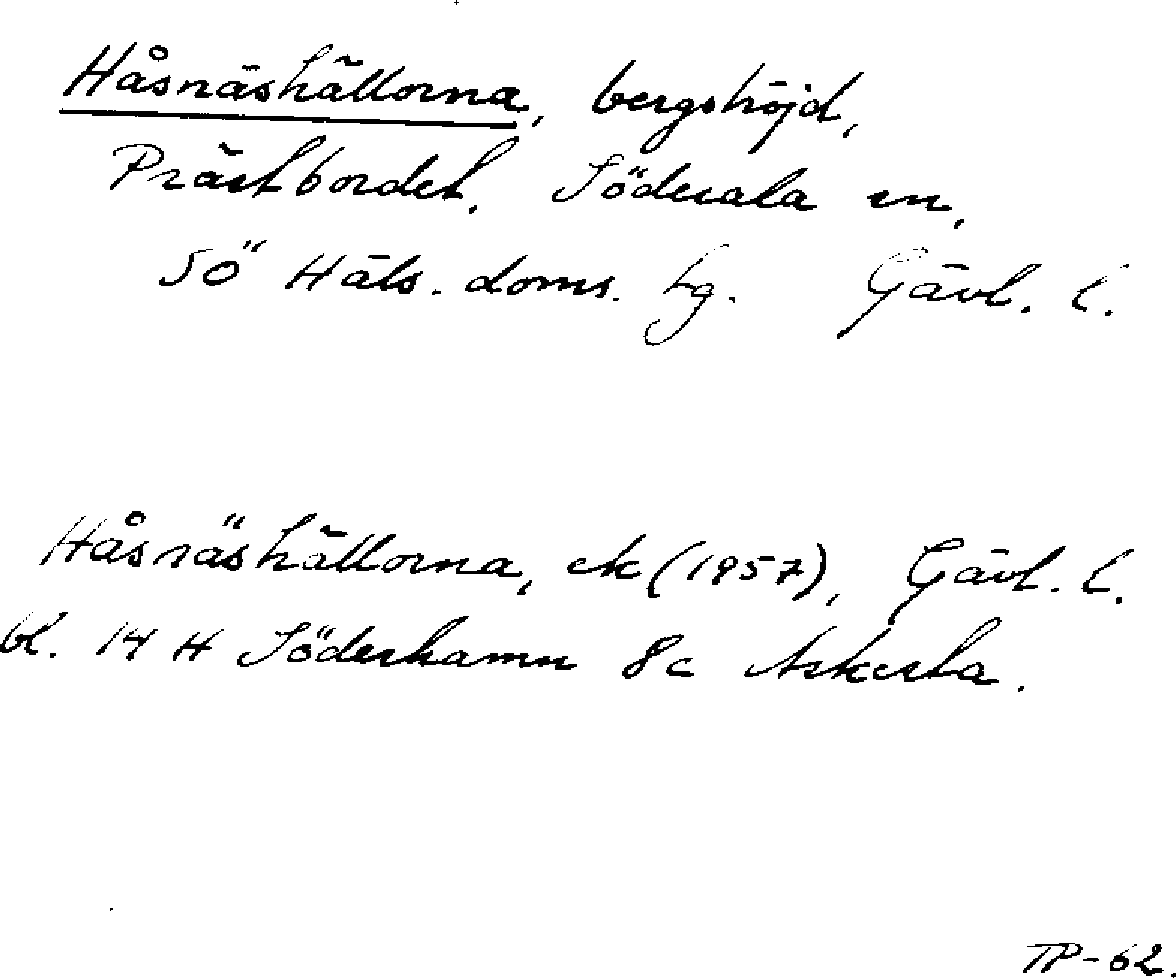 Håsnäshällorna, bergshöjd,
Prästbordet, Söderala sn,
SÖ Häls. doms. tg. Gävl. l.
Håsnäshällorna, ek (1957), Gävl. l.
bl. 14 H Söderhamn 8c Askesta.
TP-62.